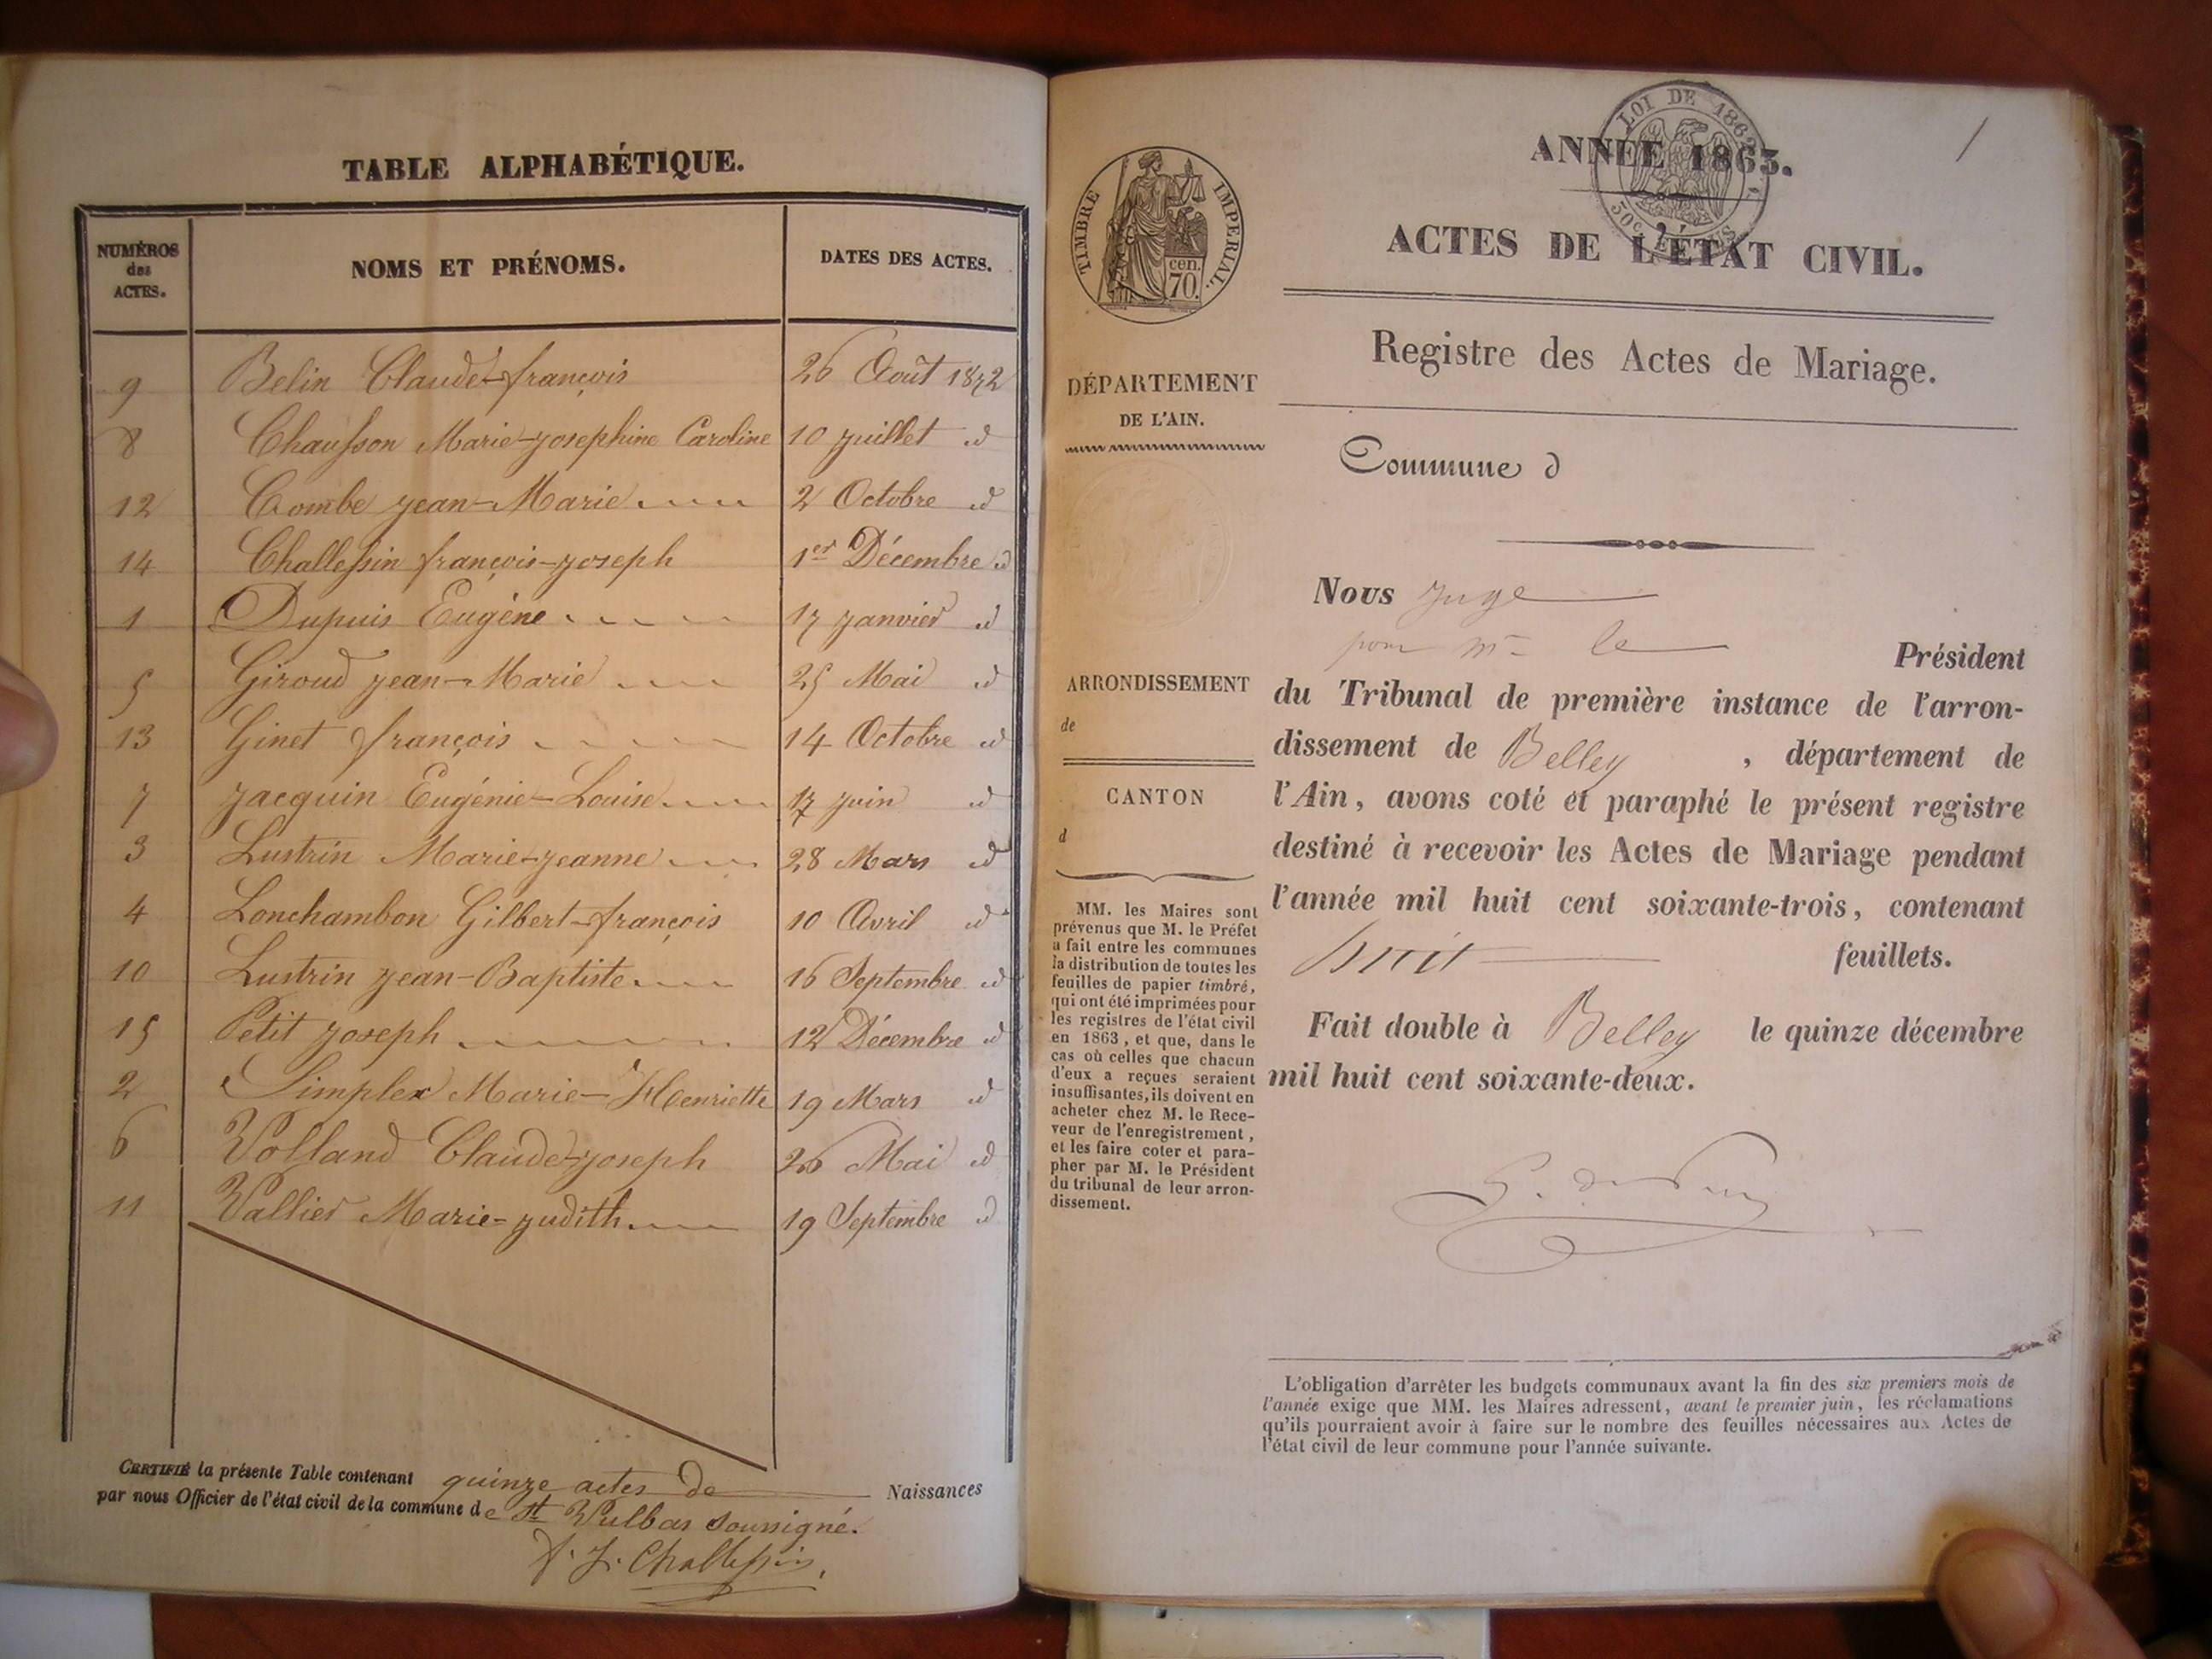 TABLE ALPHABÉTIQUE.
NUMÉROS des ACTES. NOMS ET PRÉNOMS. DATES DES ACTES.
9 Belin Claude-françois 26 Août 1872
8 Chausson Marie-josephine Caroline 10 juillet id
12 Combe jean-Marie 2 Octobre id
14 Challessin françois-joseph 1er Décembre id
1 Dupuis Eugène 17 janvier id
5 Giroud jean-Marie 25 Mai id
13 Ginet françois 14 Octobre id
7 jacquin Eugénie-Louise 17 juin id
3 Lustrin Marie-jeanne 28 Mars id
4 Lonchambon Gilbert-françois 10 Avril id
10 Lustrin jean-Baptiste 16 Septembre id
15 Petit joseph 12 Décembre id
2 Simplex Marie-Henriette 19 Mars id
6 Volland Claude-joseph 26 Mai id
11 Vallier Marie-judith 19 Septembre id
CERTIFIÉ la présente Table contenant quinze actes de Naissances
par nous Officier de l'état civil de la commune de St Vulbas soussigné.
f. j. Challessin.
LOI DE 1862
1
ANNÉE 1863.
TIMBRE IMPERIAL.
cen.
70.
ACTES DE L'ÉTAT CIVIL.
Registre des Actes de Mariage.
DÉPARTEMENT
DE L'AIN.
Commune d
ARRONDISSEMENT
de
CANTON
d
MM. les Maires sont
prévenus que M. le Préfet
a fait entre les communes
la distribution de toutes les
feuilles de papier timbré,
qui ont été imprimées pour
les registres de l'état civil
en 1863, et que, dans le
cas où celles que chacun
d'eux a reçues seraient
insuffisantes, ils doivent en
acheter chez M. le Rece-
veur de l'enregistrement,
et les faire coter et para-
pher par M. le Président
du tribunal de leur arron-
dissement.
Nous juge
pour Mr le Président
du Tribunal de première instance de l'arron-
dissement de Belley, département de
l'Ain, avons coté et paraphé le présent registre
destiné à recevoir les Actes de Mariage pendant
l'année mil huit cent soixante-trois, contenant
huit feuillets.
Fait double à Belley le quinze décembre
mil huit cent soixante-deux.
L'obligation d'arrêter les budgets communaux avant la fin des six premiers mois de
l'année exige que MM. les Maires adressent, avant le premier juin, les réclamations
qu'ils pourraient avoir à faire sur le nombre des feuilles nécessaires aux Actes de
l'état civil de leur commune pour l'année suivante.